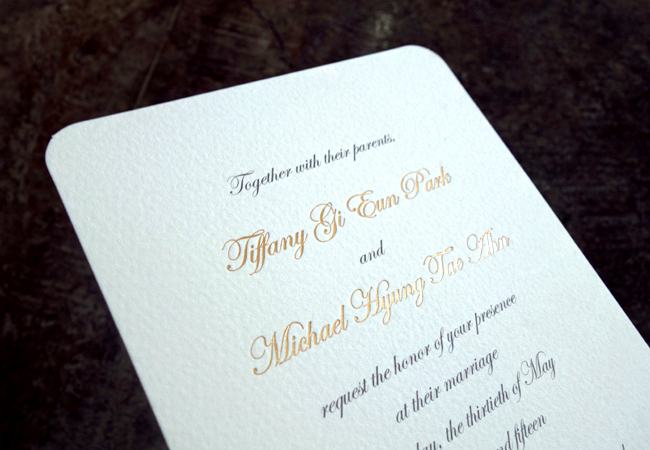 Together with their parents,
Tiffany Gi Eun Park
and
Michael Hyung Tae Ahn
request the honor of your presence
at their marriage
the thirtieth of May
fifteen